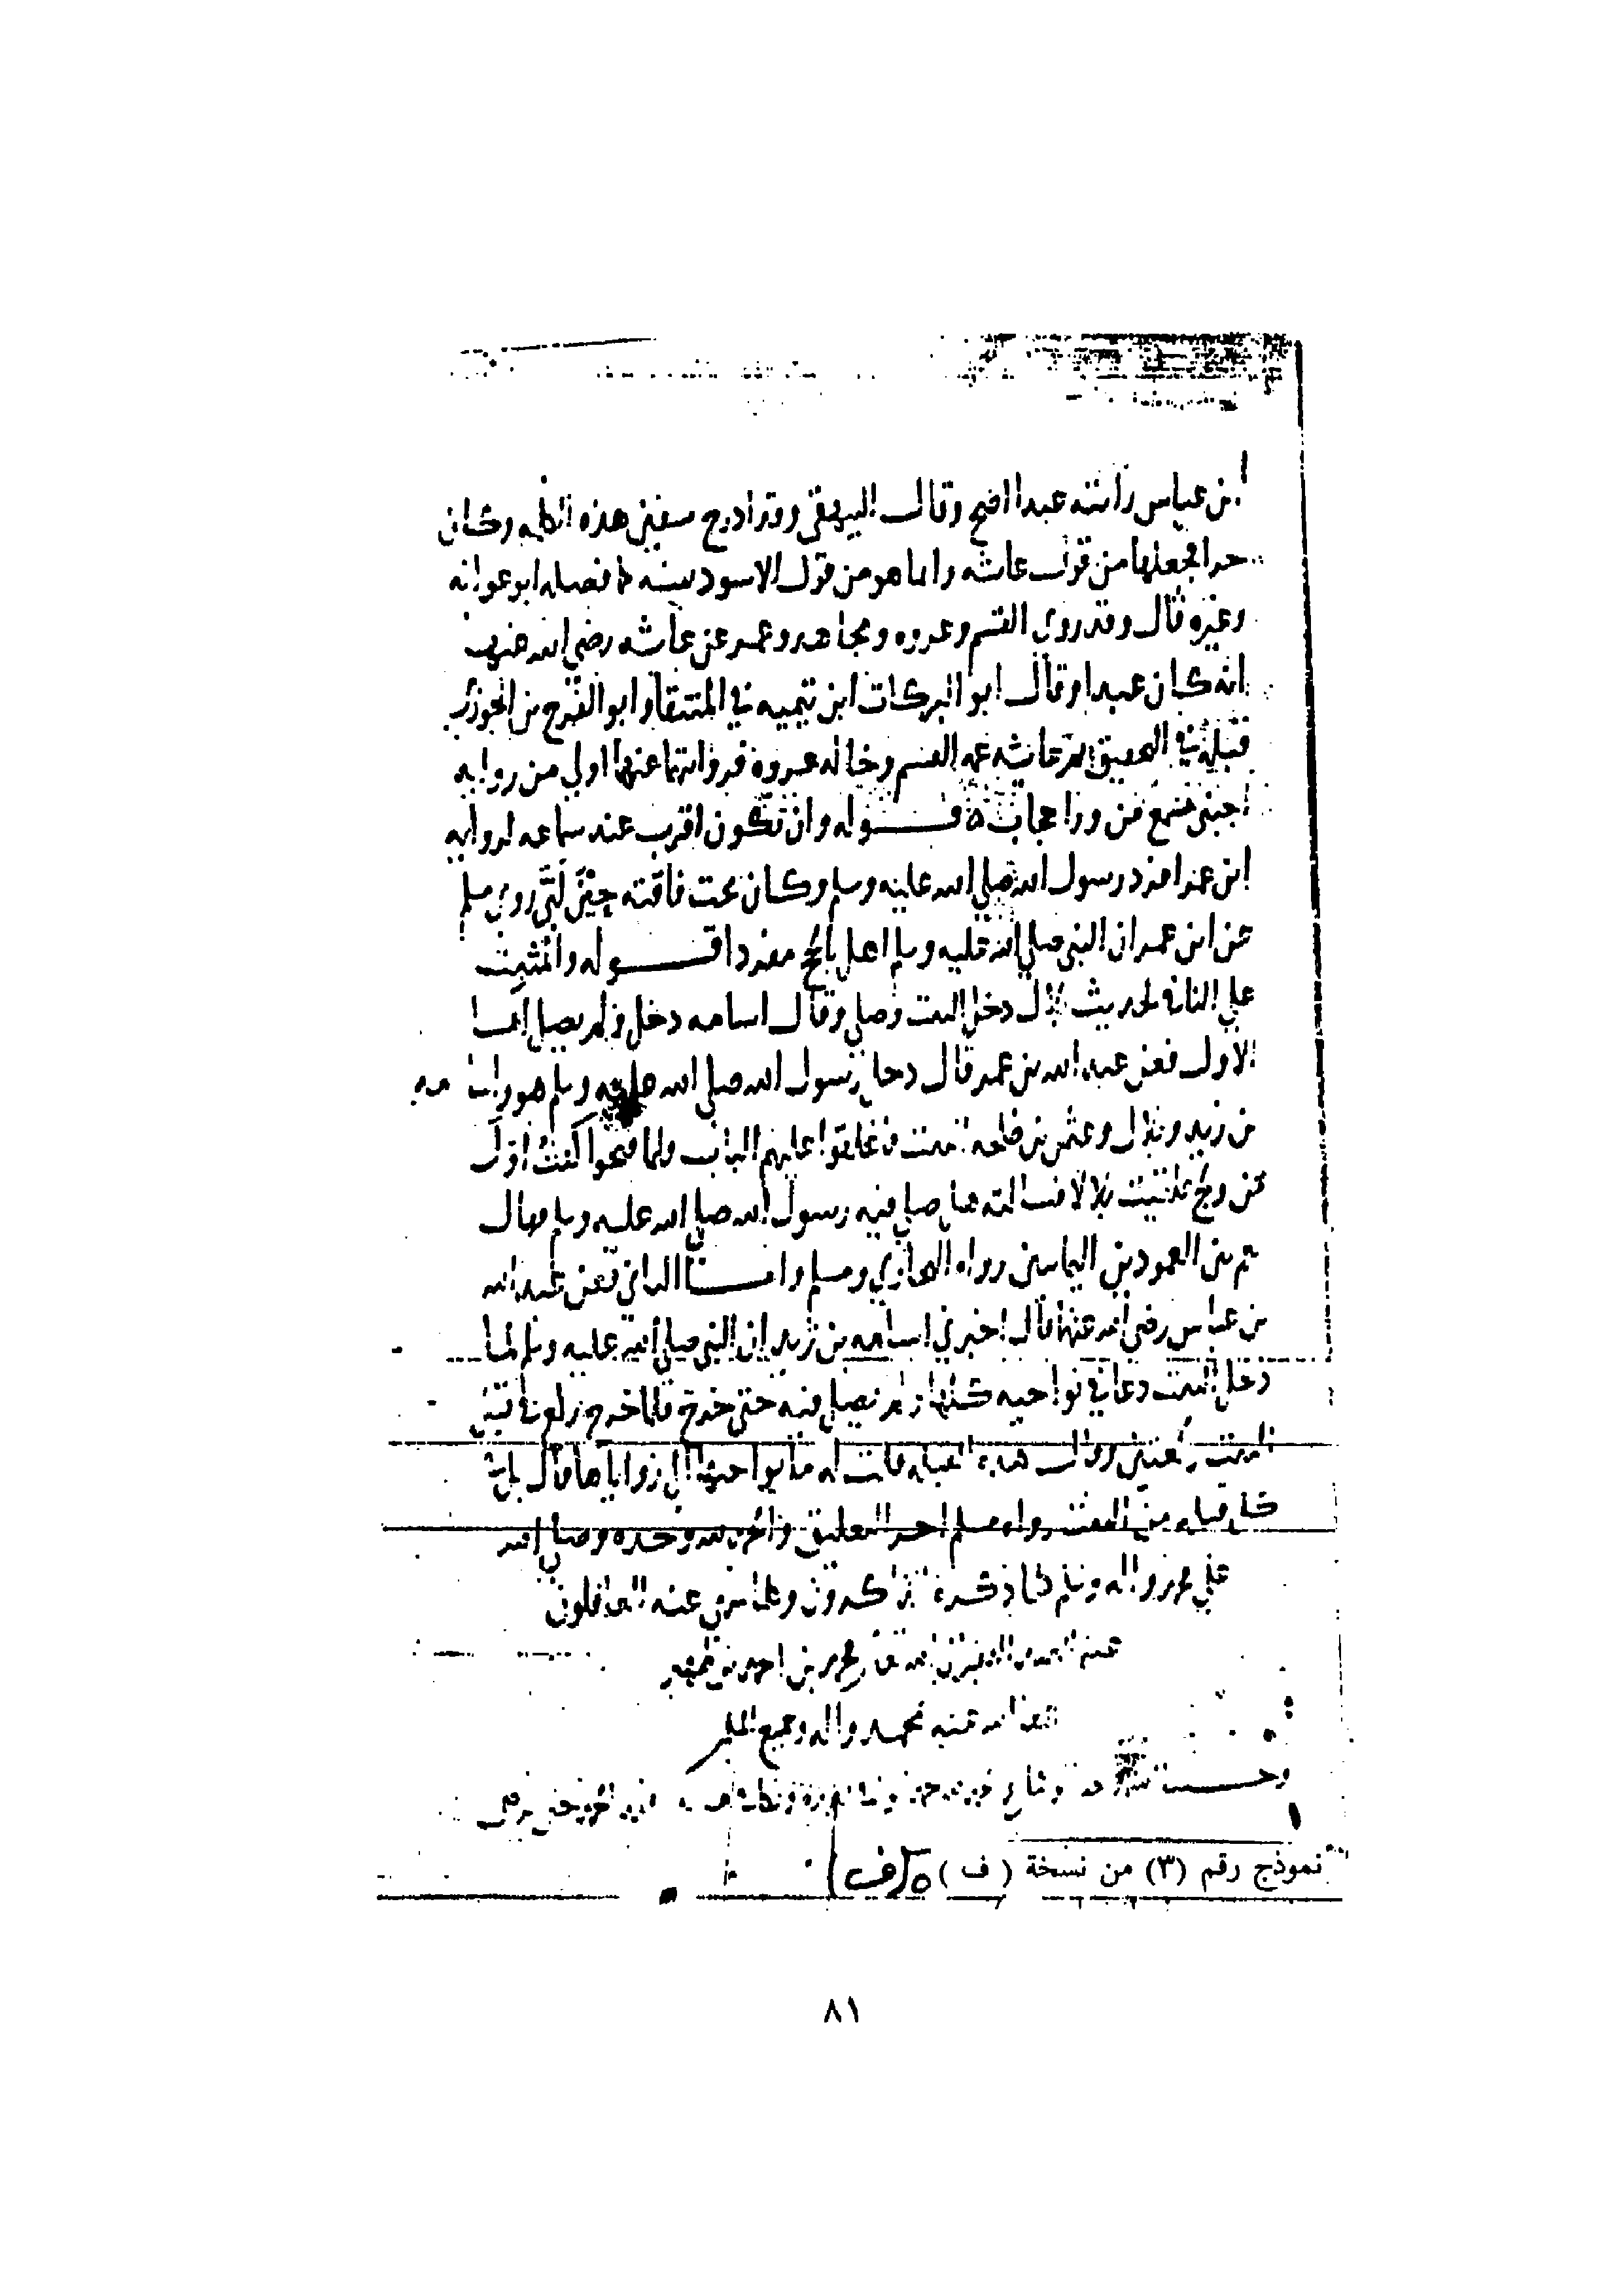 ابن عباس رأيته عبدا اصح وقال البيهقي وقد ادرج سفين هذه الكلمه وكان
حرا فجعلها من قول عائشه وانما هو من قول الاسود بينه كما فصله ابو عوانه
وغيره قال وقد روى القسم وعروه ومجاهد وعمره عن عائشه رضي الله عنها
انه كان عبدا وقال ابو البركات ابن تيميه في المنتقا وابو الفرج بن الجوزي
قبله في التحقيق عائشه عمه القسم وخاله عروه فروايتهما عنها اولى من روايه
اجنبي سمع من ورا حجاب قوله وان تكون اقرب عند سماعه لروايه
ابن عمر افرد رسول الله صلى الله عليه وسلم وكان تحت ناقته حين لبى روى مسلم
عن ابن عمر ان النبي صلى الله عليه وسلم اهل بالحج مفردا قوله والمثبت
على النافي لحديث بلال دخل البيت وصلى وقال اسامه دخل ولم يصل اما
الاول فعن عبد الله بن عمر قال دخل رسول الله صلى الله عليه وسلم هو واسامه
بن زيد وبلال وعثمن بن طلحه البيت فاغلقوا عليهم الباب ولما فتحوا كنت اول
من ولج فلقيت بلالا فسالته هل صلى فيه رسول الله صلى الله عليه وسلم فقال
نعم بين العمودين اليمانيين رواه البخاري ومسلم واما الثاني فعن عبد الله
بن عباس رضي الله عنهما قال اخبرني اسامه بن زيد ان النبي صلى الله عليه وسلم لما
دخل البيت دعا في نواحيه كلها ولم يصل فيه حتى خرج فلما خرج ركع في قبل
البيت ركعتين وقال هذه القبله قلت له ما نواحيها افي زواياها قال بل في
كل قبله من البيت رواه مسلم اخر التعليق والحمد لله وحده وصلى الله
على محمد واله وسلم كلما ذكره الذاكرون وكلما سهى عنه الغافلون
محمد بن احمد بن
عفا الله عنه بمحمد واله وجميع
نموذج رقم (٣) من نسخة ( ف )
(ف)
٨١